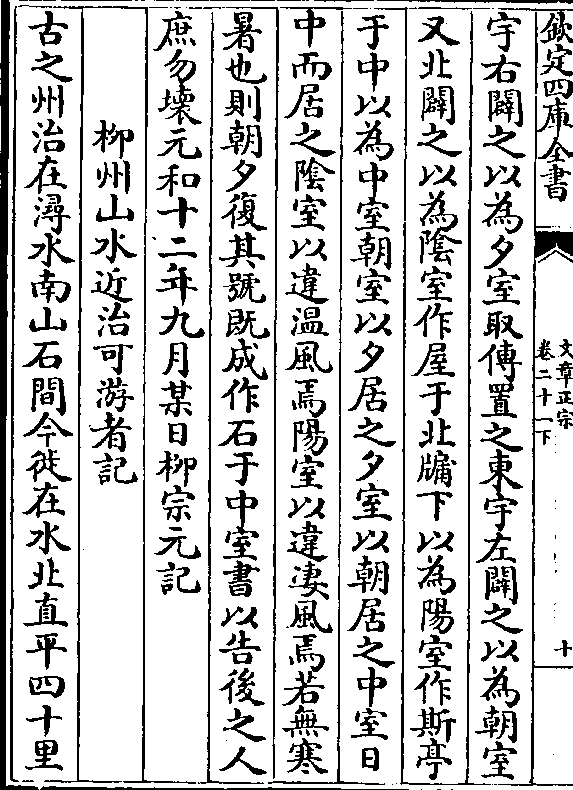 欽定四庫全書
文章正宗
卷二十一下
十
宇右闢之以為夕室取傳置之東宇左闢之以為朝室
又北闢之以為陰室作屋于北牖下以為陽室作斯亭
于中以為中室朝室以夕居之夕室以朝居之中室日
中而居之陰室以違温風焉陽室以違淒風焉若無寒
暑也則朝夕復其號既成作石于中室書以告後之人
庶勿壊元和十二年九月某日柳宗元記
柳州山水近治可游者記
古之州治在潯水南山石間今徙在水北直平四十里